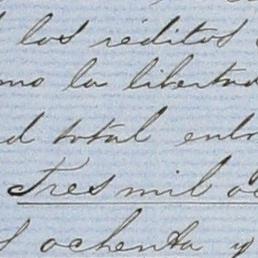 los réditos
mo la libertad
d total entr
Tres mil o
s ochenta y